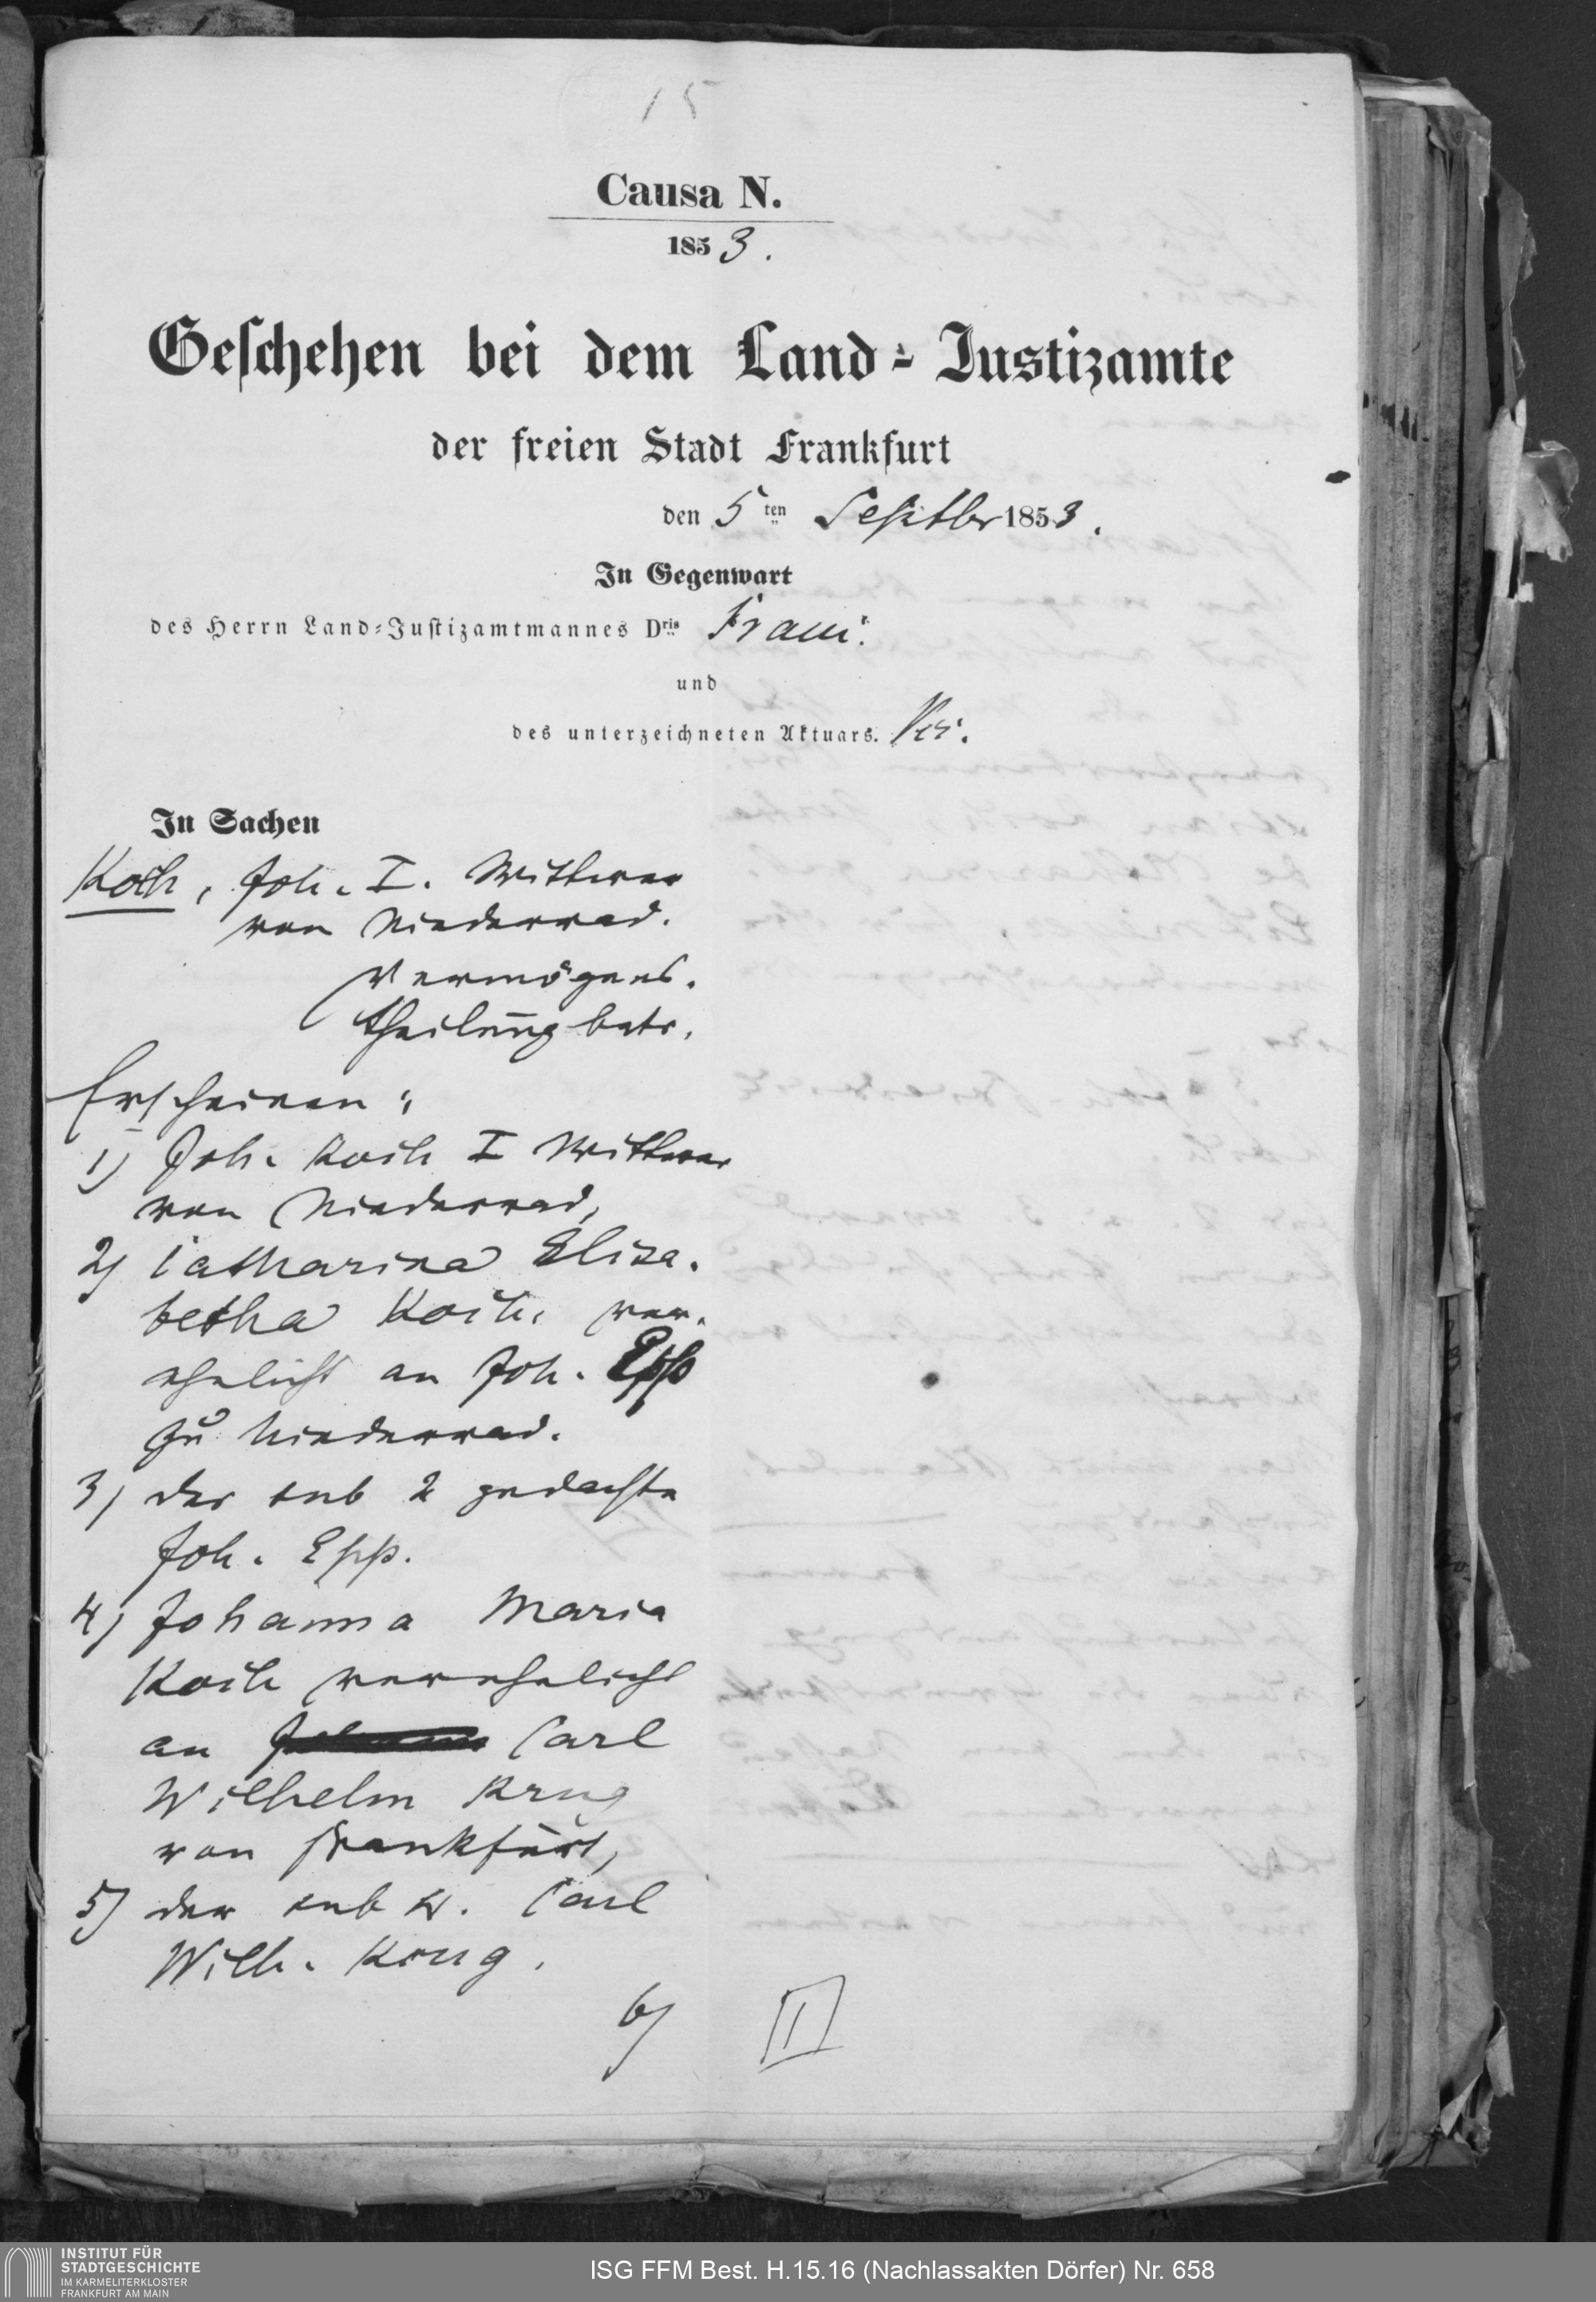 15
Causa N.
1853.
Geschehen bei dem Land-Justizamte
der freien Stadt Frankfurt
den 5ten Septbr 1853.
In Gegenwart
des Herrn Land-Justizamtmannes Dris
und
des unterzeichneten Aktuars.
In Sachen
Koch, Joh. I. Wittwer
von Niederrad.
Vermögens-
theilung betr.
Erscheinen:
1) Joh. Koch I Wittwer
von Niederrad,
2) Catharina Elisa-
betha Koch, ver-
ehelicht an Joh. Epp
zu Niederrad.
3) der sub 2 gedachte
Joh. Epp.
4) Johanna Maria
Koch verehelicht
an Carl
Wilhelm Krug
von Frankfurt,
5) der sub 4. Carl
Wilh. Krug.
6)
I
INSTITUT FÜR
STADTGESCHICHTE
IM KARMELITERKLOSTER
FRANKFURT AM MAIN
ISG FFM Best. H.15.16 (Nachlassakten Dörfer) Nr. 658